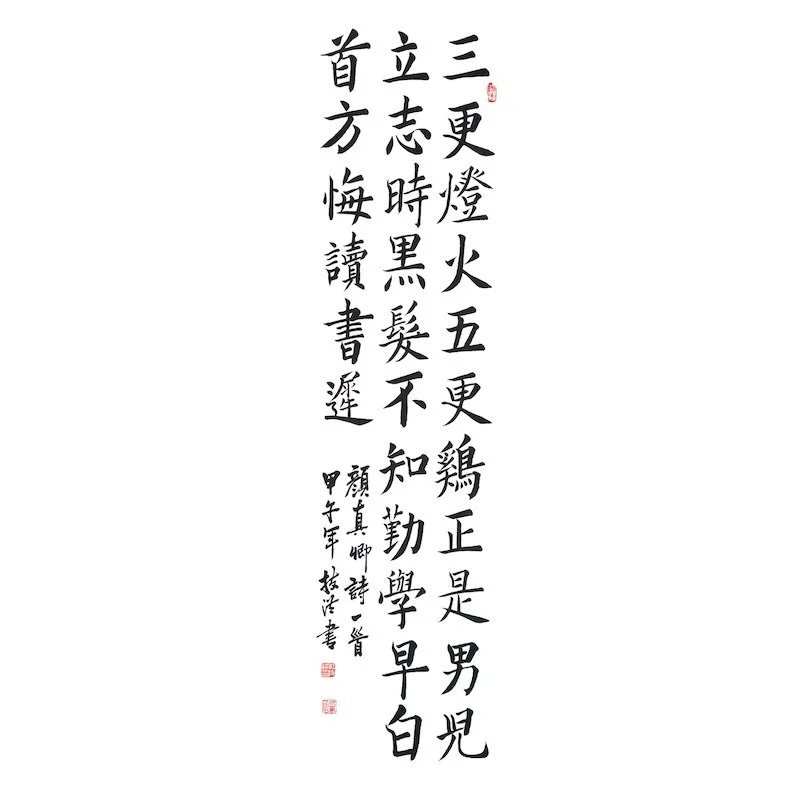 三更燈火五更鷄正是男児
立志時黒髮不知勤學早白
首方悔讀書遲
顔真卿詩一首
甲午年
書